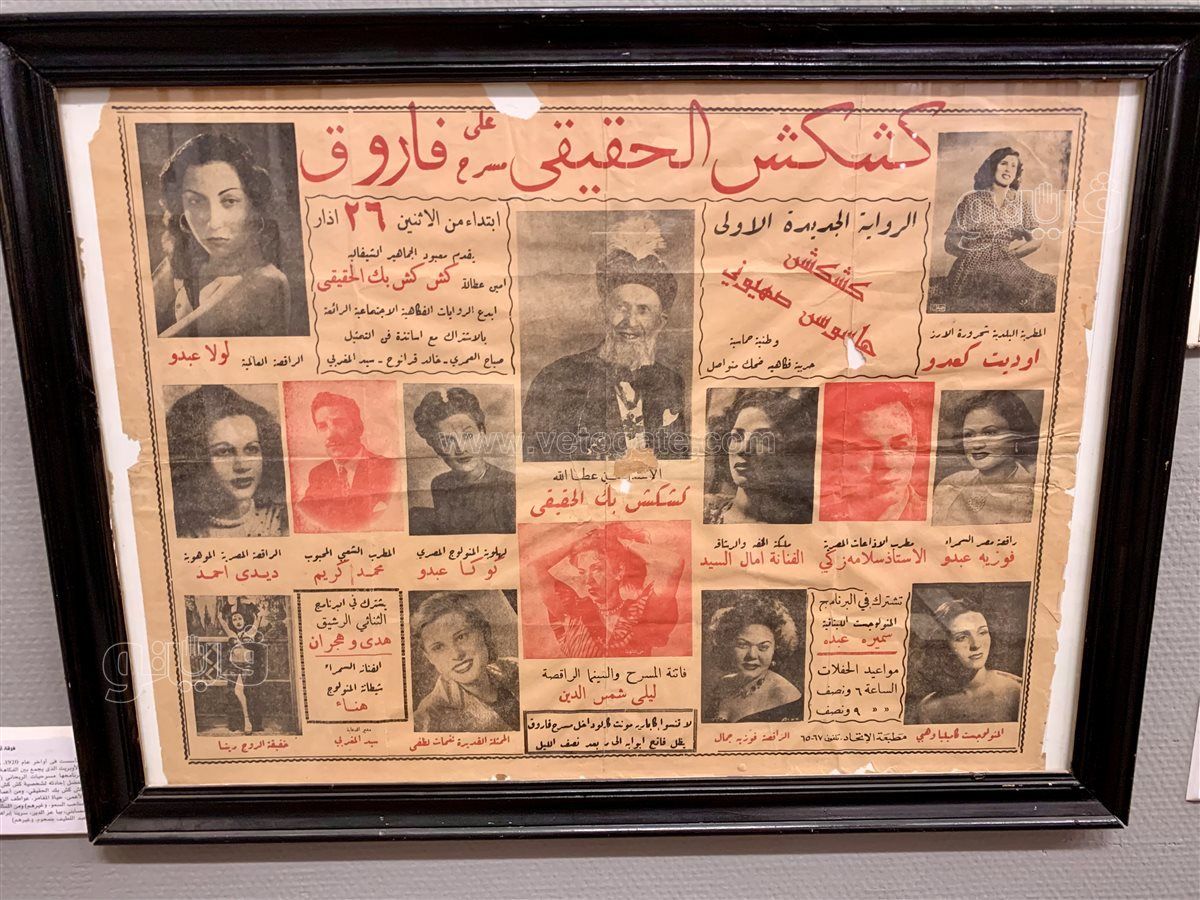 كشكش الحقيقي على مسرح فاروق
الرواية الجديدة الاولى
كشكش
جاسوس صهيوني
وطنية حماسية
حربية فكاهية ضحك متواصل
ابتداء من الاثنين ٢٦ اذار
يقدم معبود الجماهير الشيخ
امين عطالله كش كش بك الحقيقي
ابدع الروايات الفكاهية الاجتماعية الرائعة
بالاشتراك مع اساتذة فن التمثيل
صباح العمري - خالد قرانوح - سيد المغربي
المطربة البلدية شحرورة الارز
اوديت كعدو
الراقصة العالمية لولا عبدو
عطا الله
كشكش بك الحقيقي
راقصة مصر السمراء
فوزيه عبدو
مطرب الاذاعات المصرية
الاستاذ سلامه زكي
ملكة الخفة والرشاقة
الفنانة امال السيد
بهلوية المنولوج المصري
لوكا عبدو
المطرب الشعبي المحبوب
محمد كريم
الراقصة المصرية الموهوبة
ديدى احمد
تشترك في البرنامج
المنولوجست اللبنانية
سميره عبده
مواعيد الحفلات
الساعة ٦ ونصف
” ” ٩ ونصف
المنولوجست كاميليا وهبي
الراقصة فوزيه جمال
مطبعة الاتحاد، تلفون ٦٥٦٧
فاتنة المسرح والسينما الراقصة
ليلى شمس الدين
لا تنسوا كاباريه مونت كارلو داخل مسرح فاروق
يظل فاتح ابوابه الى ما بعد نصف الليل
يشترك في البرنامج
الثنائي الرشيق
هدى وهجران
الفنانة السمراء
شيطانة المنولوج
هناء
سيد المغربي
الممثلة القديرة نعمات لطفي
خفيفة الروح ريتا
www.vetogate.com
ڤيتو
ڤيتو